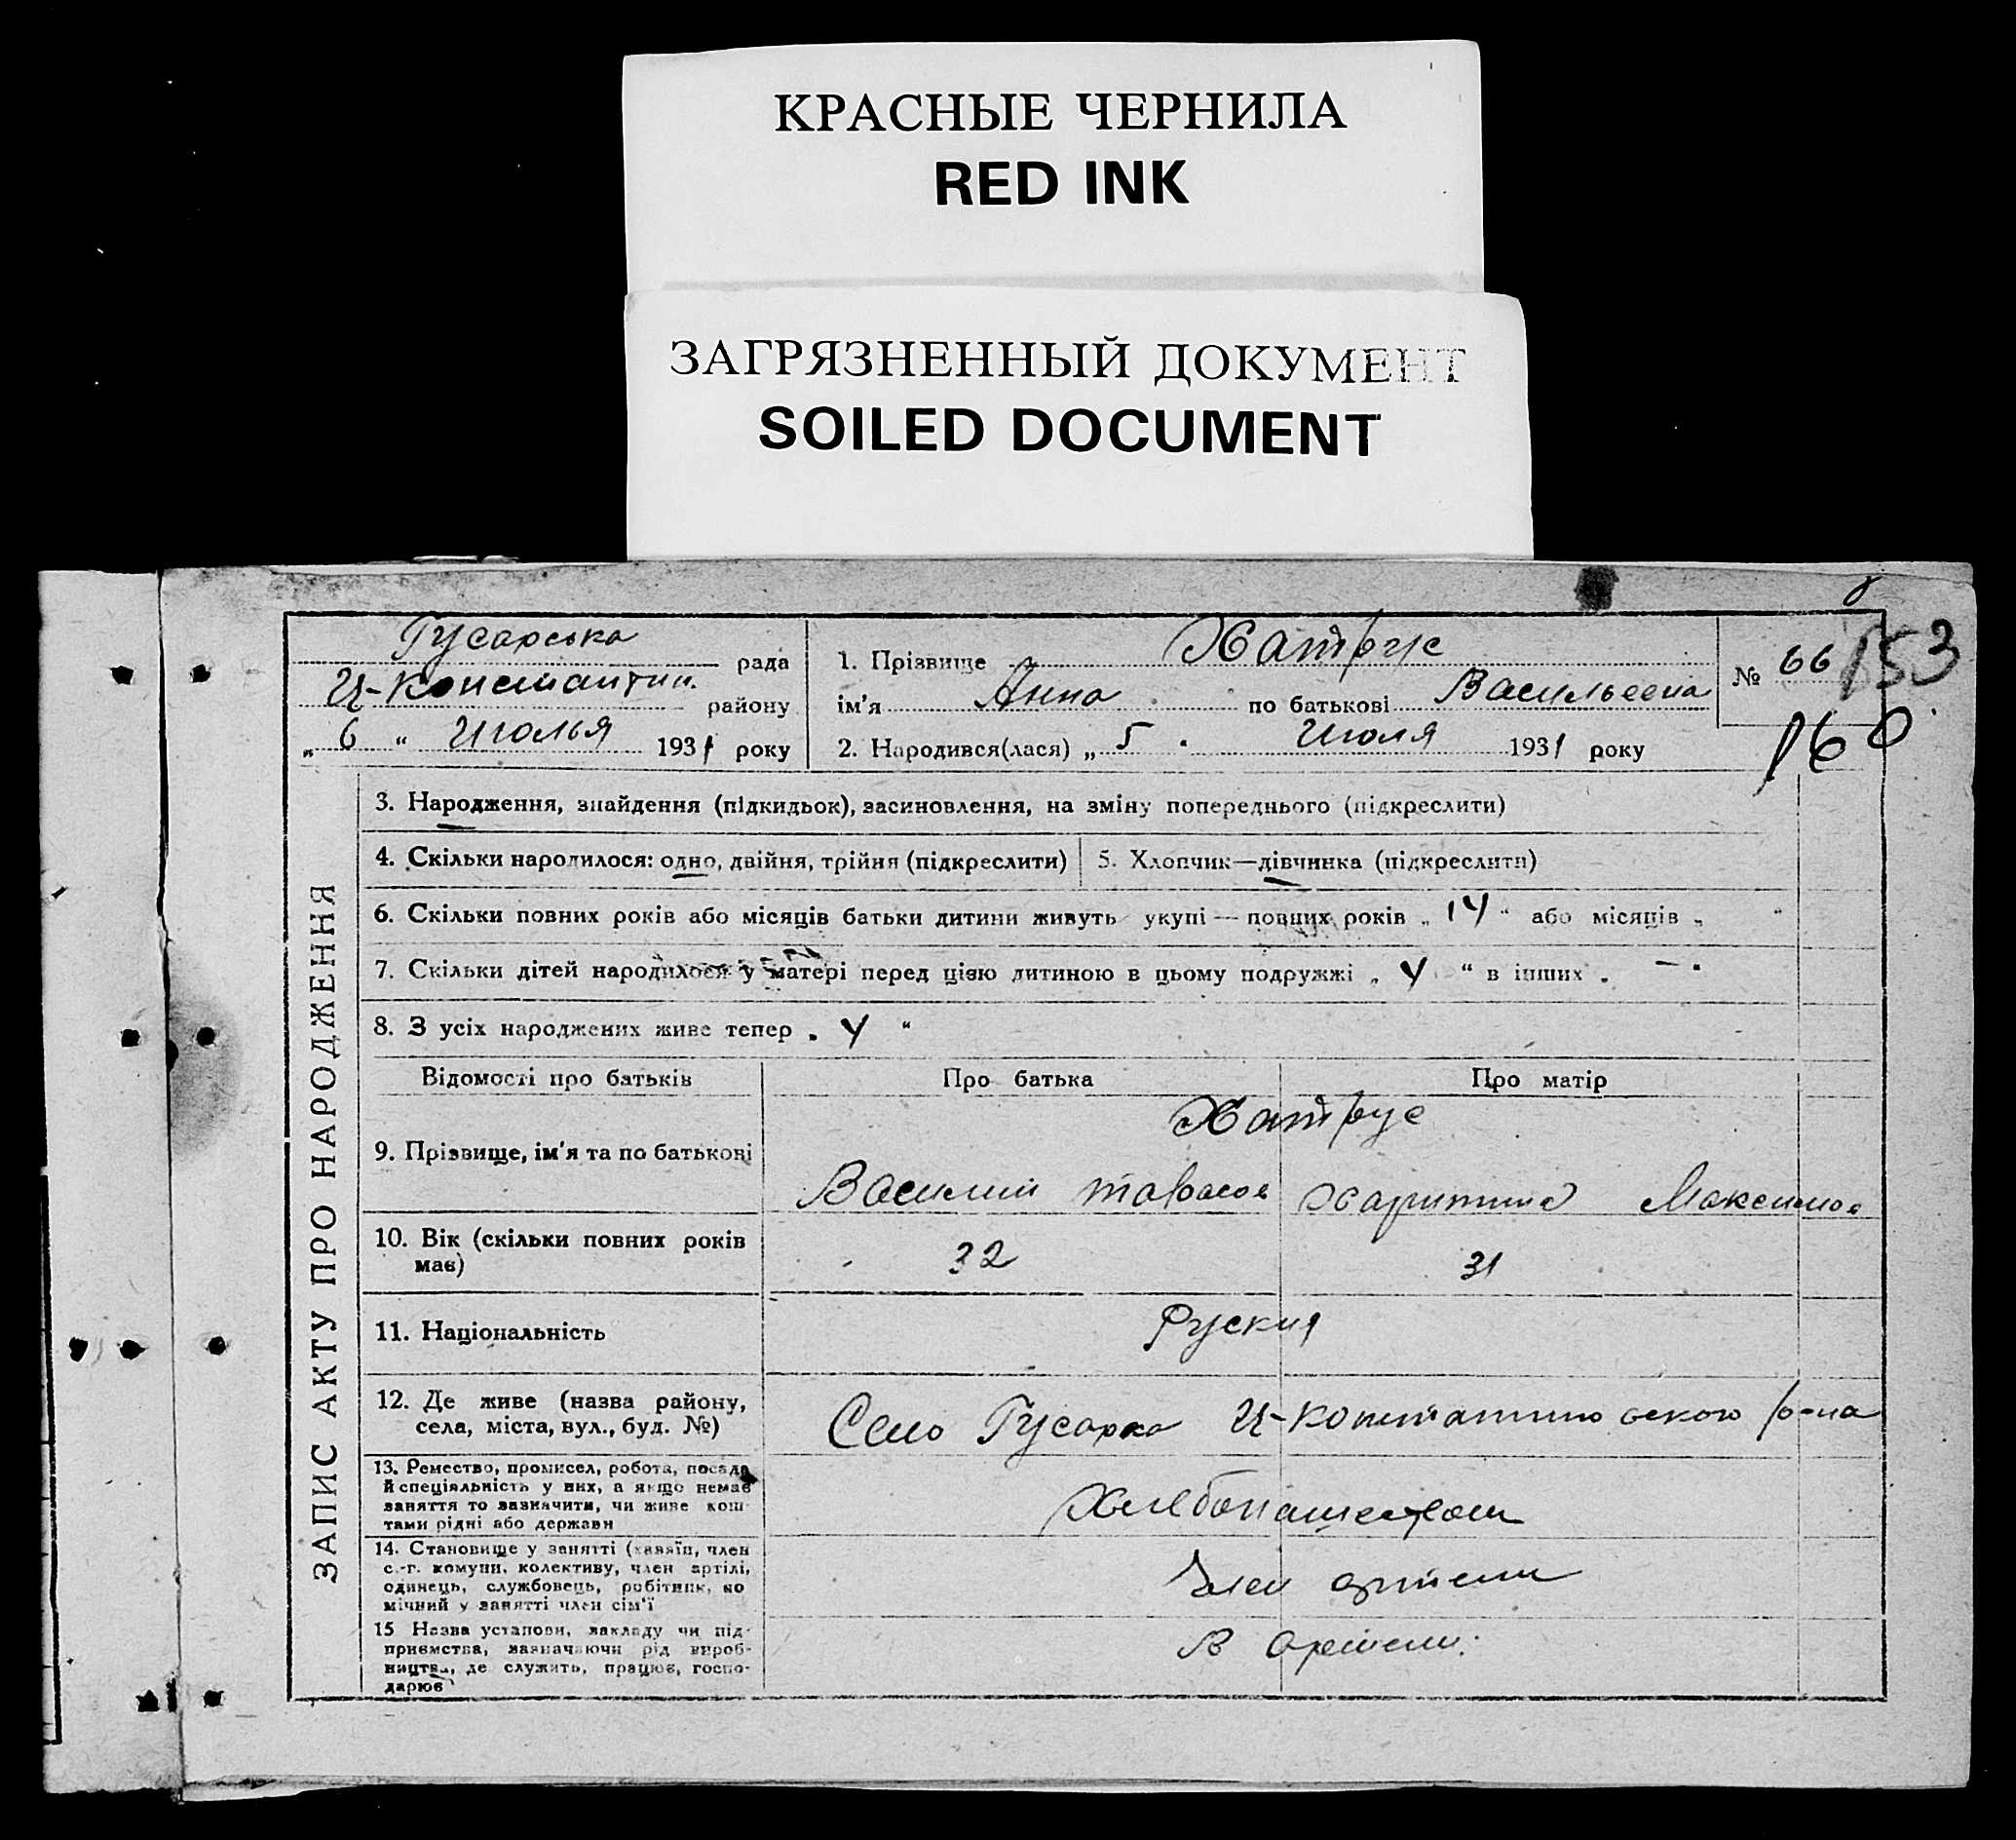 КРАСНЫЕ ЧЕРНИЛА
RED INK
ЗАГРЯЗНЕННЫЙ ДОКУМЕНТ
SOILED DOCUMENT
Гусарська рада
Ц-Константин. району
„ 6 “ Июлья 1931 року
1. Прізвище Хатрус
ім'я Анна по батькові Васильевна
2. Народився(лася) „ 5 “ Июля 1931 року
№ 66
153
160
ЗАПИС АКТУ ПРО НАРОДЖЕННЯ
3. Народження, знайдення (підкидьок), засиновлення, на зміну попереднього (підкреслити)
4. Скільки народилося: одно, двійня, трійня (підкреслити)
5. Хлопчик—дівчинка (підкреслити)
6. Скільки повних років або місяців батьки дитини живуть укупі — повних років „ 14 “ або місяців „ “
7. Скільки дітей народилося у матері перед цією дитиною в цьому подружжі „ 4 “ в інших „ — “
8. З усіх народжених живе тепер „ 4 “
Відомості про батьків Про батька Про матір
9. Прізвище, ім'я та по батькові
Хатрус
Василий Тарасов Харитина Максимов
10. Вік (скільки повних років
має)
32 31
11. Національність
Руския
12. Де живе (назва району,
села, міста, вул., буд. №)
Село Гусарка Ц-Константиновского р-на
13. Ремество, промисел, робота, посада
й спеціяльність у них, а якщо немає
заняття то зазначити, чи живе кош-
тами рідні або держави
Хлебопашеством
14. Становище у занятті (хазяїн, член
с.-г. комуни, колективу, член артілі,
одинець, службовець, робітник, по
мічний у занятті член сім'ї
Член артели
15 Назва установи, закладу чи під-
приємства, зазначаючи рід вироб-
ництва, де служить, працює, госпо-
дарює
в артели.